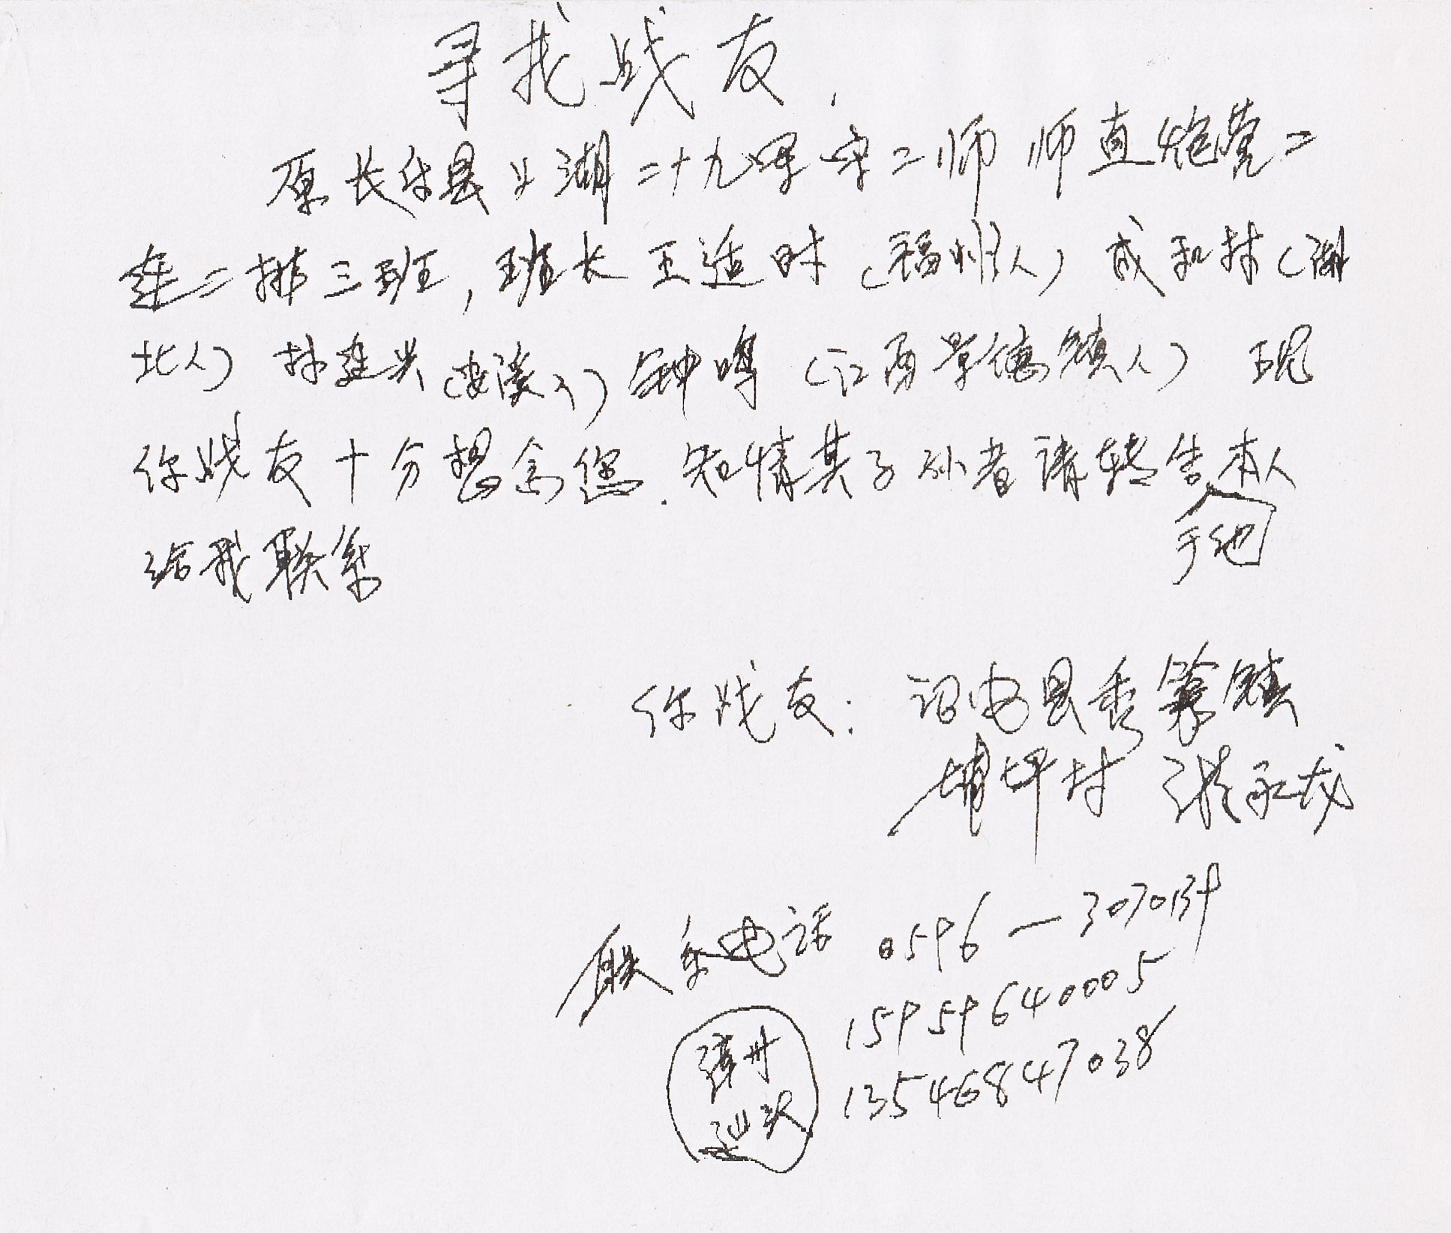 寻找战友
原长乐县 湖二十九军守二师 师直炮营二
连二排三班，班长 王适时（福州人）成和林（湖
北人）林连兴（安溪人）钟鸣（江西景德镇人） 现
你战友十分想念您．知情其子孙者请转告本人
于他
给我联系
你战友：诏安县秀篆镇
埔坪村 张永龙
联系电话 0596－3070139
15959640005
漳州 13546847038
汕头